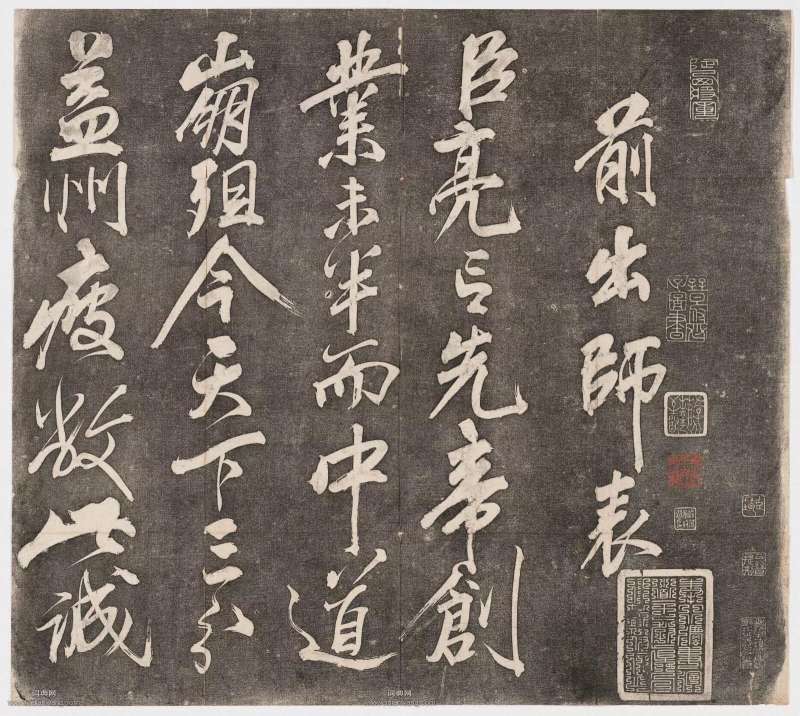 前出師表
臣亮言先帝創
業未半而中道
崩殂今天下三分
益州疲敝此誠
词典网
词典网